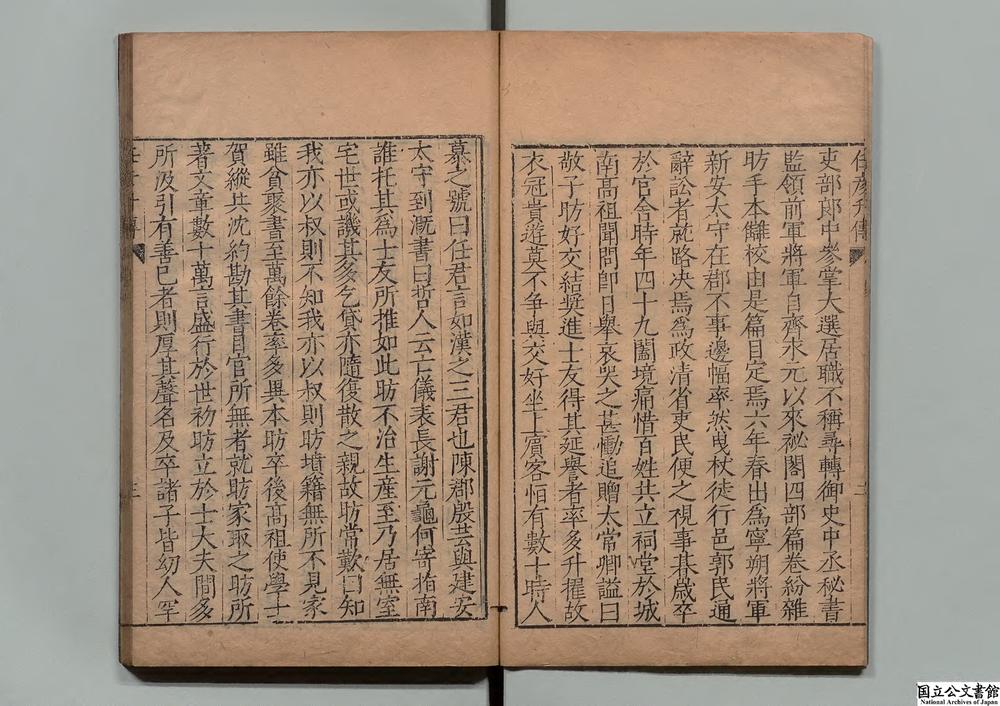 任彦升傳
吏部郎中參掌大選居職不稱尋轉御史中丞秘書
監領前軍將軍自齊永元以來秘閣四部篇卷紛雜
昉手本讎校由是篇目定焉六年春出為寧朔將軍
新安太守在郡不事邊幅率然曳杖徒行邑郭民通
辭訟者就路决焉為政清省吏民便之視事朞歳卒
於官舍時年四十九闔境痛惜百姓共立祠堂於城
南高祖聞問即日舉哀哭之甚慟追贈太常卿謚曰
敬子昉好交結奬進士友得其延譽者率多升擢故
衣冠貴遊莫不爭與交好坐上賓客恒有數十時人
慕之號曰任君言如漢之三君也陳郡殷芸與建安
太守到溉書曰哲人云亡儀表長謝元龜何寄指南
誰托其為士友所推如此昉不治生産至乃居無室
宅世或譏其多乞貸亦隨復散之親故昉常歎曰知
我亦以叔則不知我亦以叔則昉墳籍無所不見家
雖貧聚書至萬餘卷率多異本昉卒後高祖使學士
賀縱共沈約勘其書目官所無者就昉家取之昉所
著文章數十萬言盛行於世初昉立於士大夫間多
所汲引有善己者則厚其聲名及卒諸子皆幼人罕
三
国立公文書館
National Archives of Japan